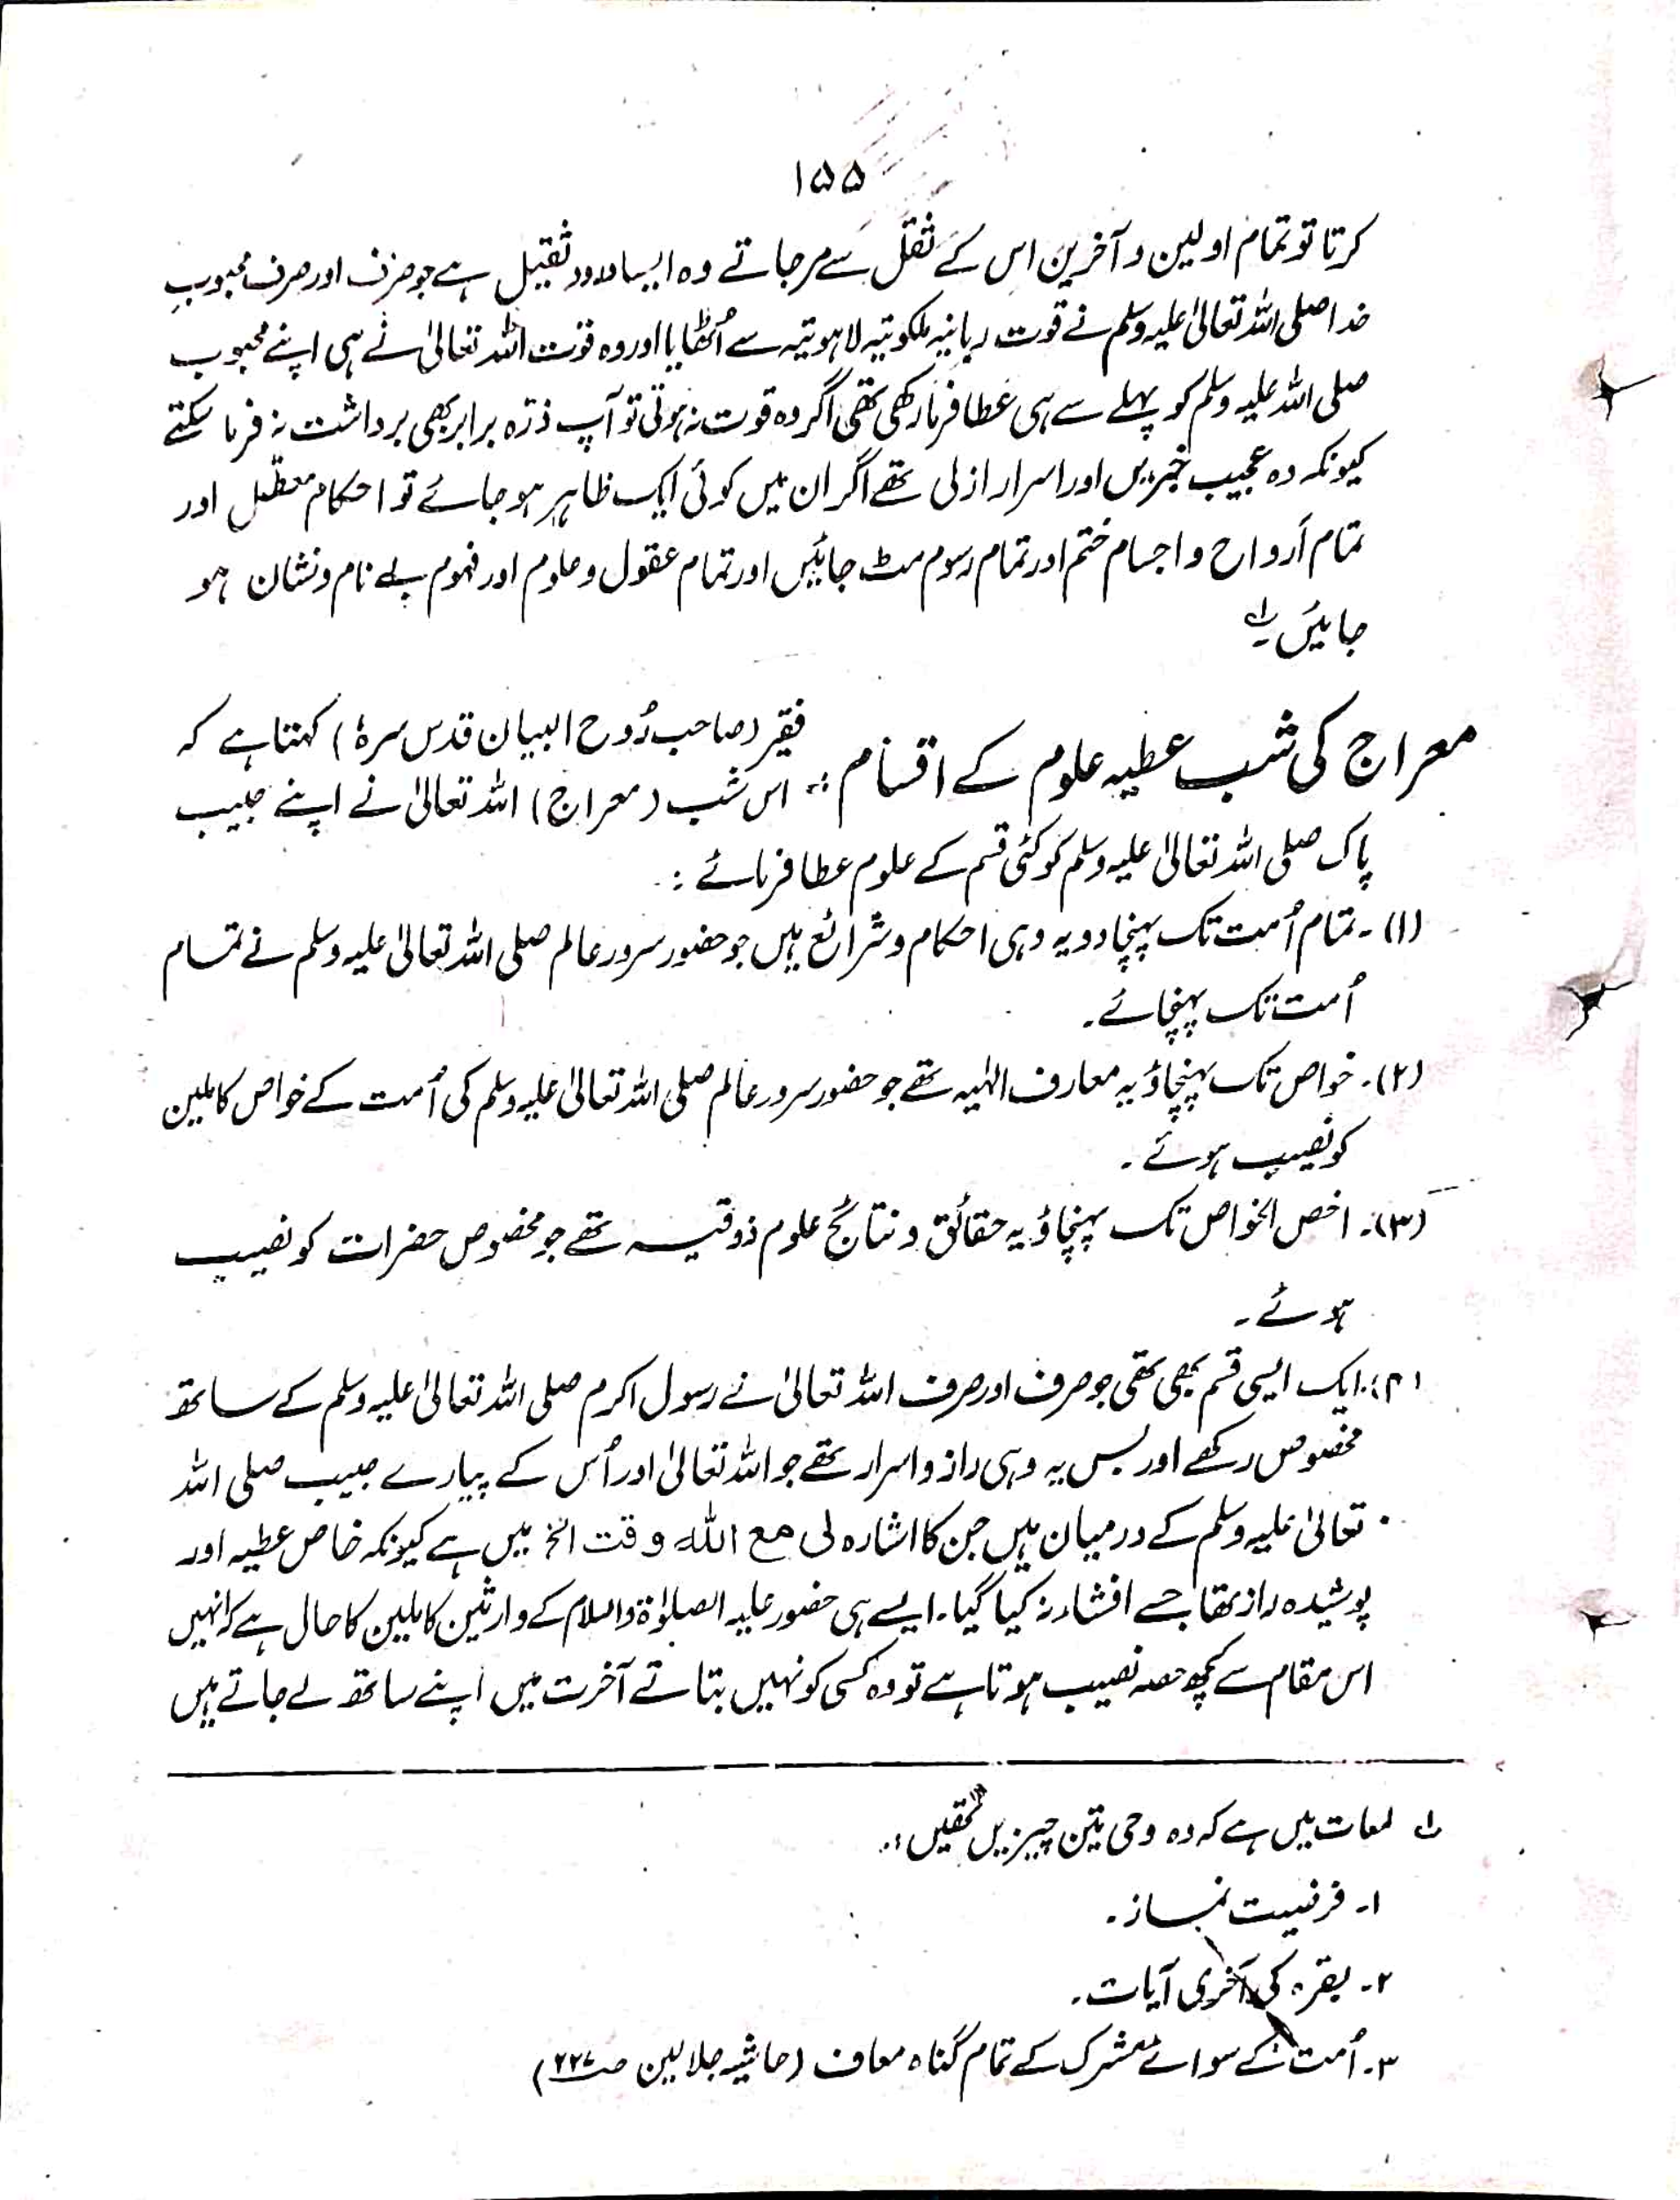 ۱۵۵
کرتا تو تمام اولین و آخرین اس کے ثقل سے مر جاتے وہ ایسا ورود ثقیل ہے جو صرف اور صرف محبوبِ
خدا صلی اللہ تعالیٰ علیہ وسلم نے قوت ربانیہ ملکوتیہ لاہوتیہ سے اُٹھایا اور وہ قوت اللہ تعالیٰ نے ہی اپنے محبوب
صلی اللہ علیہ وسلم کو پہلے سے ہی عطا فرما رکھی تھی اگر وہ قوت نہ ہوتی تو آپ ذرّہ برابر بھی برداشت نہ فرما سکتے
کیونکہ وہ عجیب خبریں اور اسرار ازلی تھے اگر ان میں کوئی ایک ظاہر ہو جائے تو احکام معطّل اور
تمام اَرواح و اجسام ختم اور تمام رسوم مٹ جائیں اور تمام عقول و علوم اور فہوم بے نام و نشان ہو
جائیں۔ لہ
معراج کی شب عطیہ علوم کے اقسام :- فقیر (صاحب رُوح البیان قدس سرہٗ) کہتا ہے کہ
اس شب (معراج) اللہ تعالیٰ نے اپنے حبیب
پاک صلی اللہ تعالیٰ علیہ وسلم کو کئی قسم کے علوم عطا فرمائے :
(۱)۔ تمام اُمت تک پہنچا دو یہ وہی احکام و شرائع ہیں جو حضور سرور عالم صلی اللہ تعالیٰ علیہ وسلم نے تمام
اُمت تک پہنچائے۔
(۲)۔ خواص تک پہنچاؤ یہ معارف الٰہیہ تھے جو حضور سرور عالم صلی اللہ تعالیٰ علیہ وسلم کی اُمت کے خواص کاملین
کو نصیب ہوئے۔
(۳)۔ اخص الخواص تک پہنچاؤ یہ حقائق و نتائج علوم ذوقیہ تھے جو مخصوص حضرات کو نصیب
ہوئے۔
(۴)۔ ایک ایسی قسم بھی تھی جو صرف اور صرف اللہ تعالیٰ نے رسول اکرم صلی اللہ تعالیٰ علیہ وسلم کے ساتھ
مخصوص رکھے اور بس یہ وہی راز و اسرار تھے جو اللہ تعالیٰ اور اُس کے پیارے حبیب صلی اللہ
تعالیٰ علیہ وسلم کے درمیان ہیں جن کا اشارہ لی مع اللہ وقت الخ میں ہے کیونکہ خاص عطیہ اور
پوشیدہ راز تھا جسے افشاء نہ کیا گیا۔ ایسے ہی حضور علیہ الصلوٰۃ والسلام کے وارثین کاملین کا حال ہے کہ انہیں
اس مقام سے کچھ حصہ نصیب ہوتا ہے تو وہ کسی کو نہیں بتاتے آخرت میں اپنے ساتھ لے جاتے ہیں
لہ لمعات میں ہے کہ وہ وحی تین چیزیں تھیں :
۱۔ فرضیت نماز۔
۲۔ بقرہ کی آخری آیات۔
۳۔ اُمت کے سوائے شرک کے تمام گناہ معاف (حاشیہ جلالین صـ ۲۲۷)